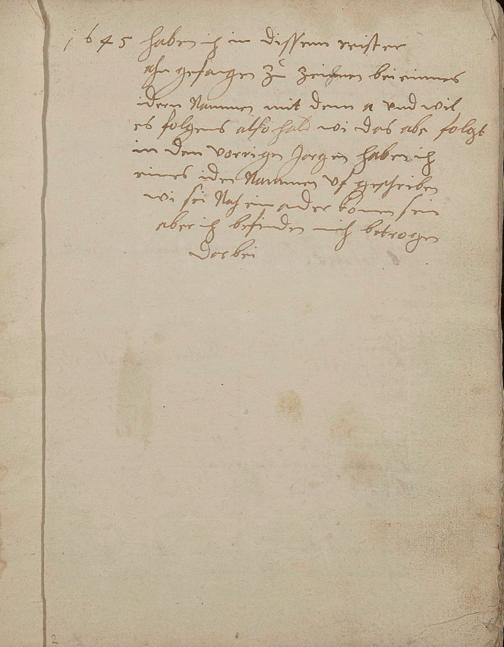 1645 haben ich in dissem reister
ahn gefangen zu zeichnen bei eines
idern Nammen mit dem a und wil
es folgens also hald wi das abc folgt
in den vorrigen Jorgen haben ich
eines iden Nammen uf geschriben
wi sei Nach ein ander komen sein
aber ich befinden mich betrogen
dar bei
2